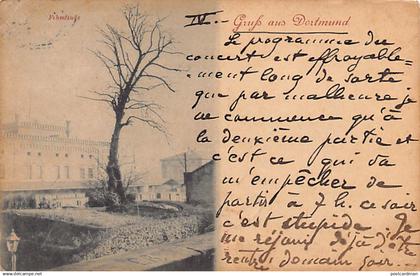 Vehmlinde
IV.
Gruß aus Dortmund
Le programme du
concert est effroyable-
ment long de sorte
que par malheur je
ne commence qu'à
la deuxième partie et
c'est ce qui va
m'empêcher de
partir à 7 h. ce soir
c'est stupide Je
me réjouis déjà d'êt
demain soir.
postcardman